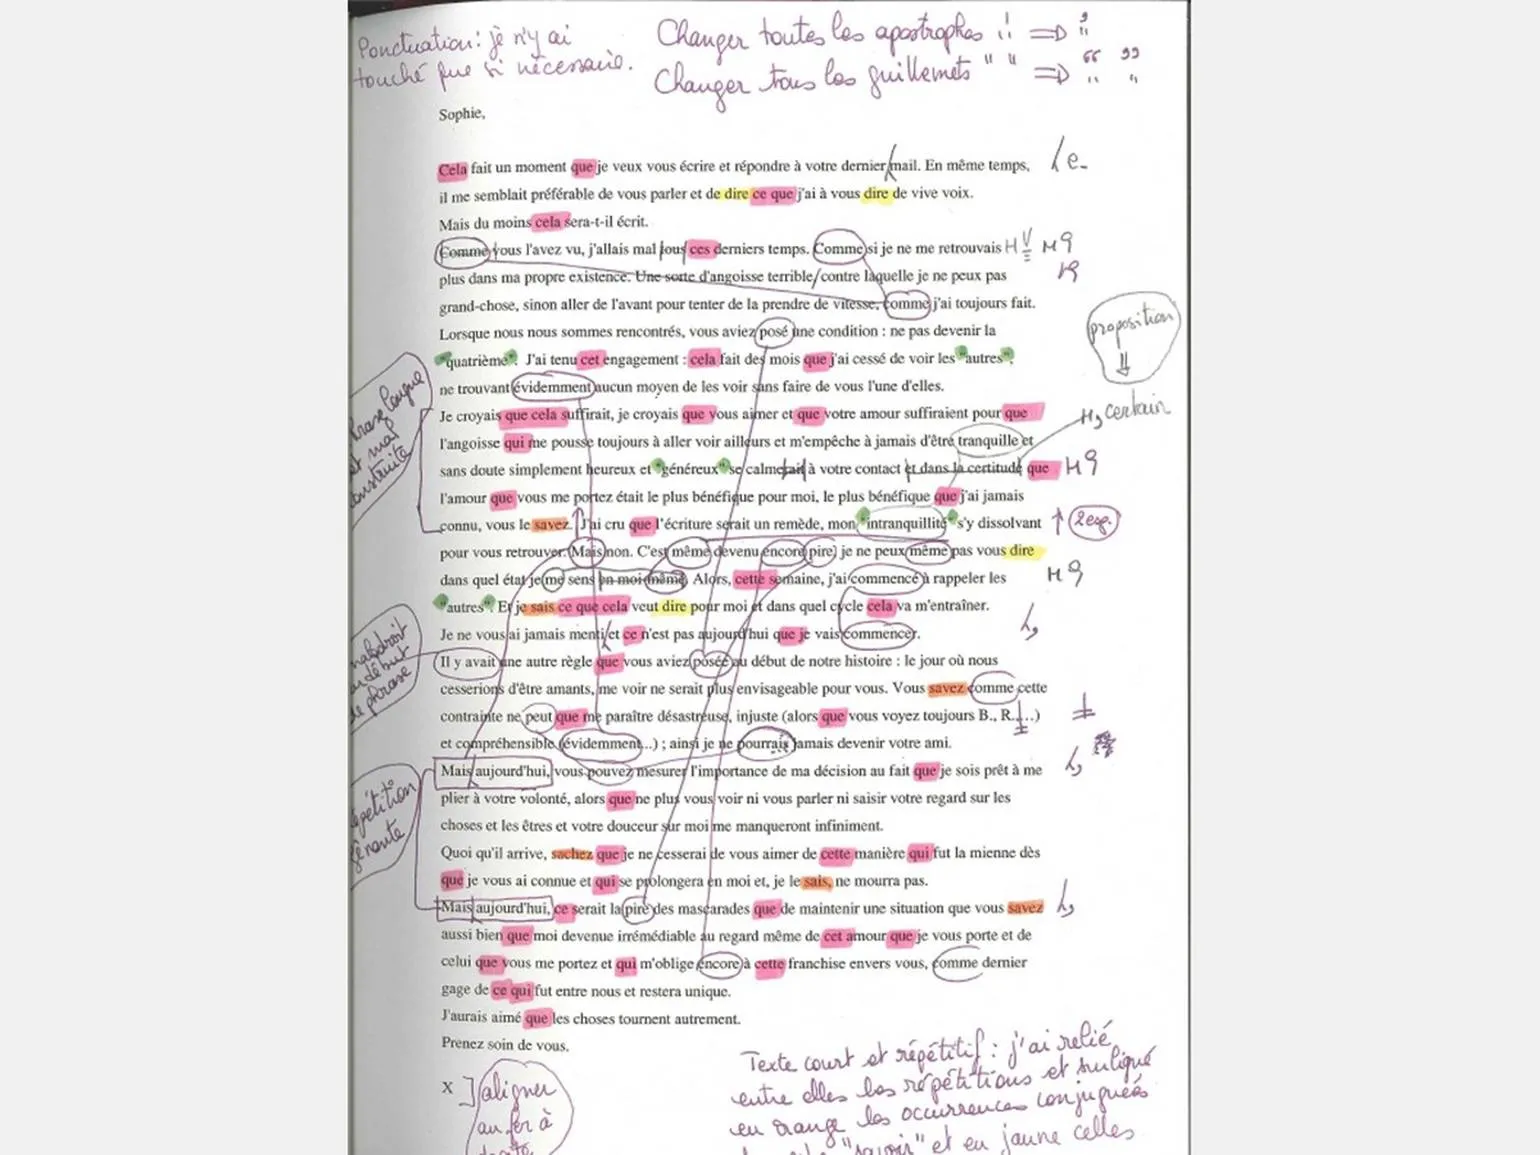 Ponctuation : je n'y ai
touché que si nécessaire.
Changer toutes les apostrophes ' ⇒ ’
Changer tous les guillemets " " ⇒ “ ”
Sophie,
Cela fait un moment que je veux vous écrire et répondre à votre dernier mail. En même temps,
e
il me semblait préférable de vous parler et de dire ce que j'ai à vous dire de vive voix.
Mais du moins cela sera-t-il écrit.
Comme vous l'avez vu, j'allais mal tous ces derniers temps. Comme si je ne me retrouvais
plus dans ma propre existence. Une sorte d'angoisse terrible, contre laquelle je ne peux pas
grand-chose, sinon aller de l'avant pour tenter de la prendre de vitesse, comme j'ai toujours fait.
Lorsque nous nous sommes rencontrés, vous aviez posé une condition : ne pas devenir la
proposition
"quatrième". J'ai tenu cet engagement : cela fait des mois que j'ai cessé de voir les "autres",
ne trouvant évidemment aucun moyen de les voir sans faire de vous l'une d'elles.
Phrase longue
et mal
construite
Je croyais que cela suffirait, je croyais que vous aimer et que votre amour suffiraient pour que
certain
l'angoisse qui me pousse toujours à aller voir ailleurs et m'empêche à jamais d'être tranquille et
sans doute simplement heureux et "généreux" se calmerait à votre contact et dans la certitude que
l'amour que vous me portez était le plus bénéfique pour moi, le plus bénéfique que j'ai jamais
connu, vous le savez. J'ai cru que l'écriture serait un remède, mon "intranquillité" s'y dissolvant
2 esp.
pour vous retrouver. Mais non. C'est même devenu encore pire, je ne peux même pas vous dire
dans quel état je me sens en moi-même. Alors, cette semaine, j'ai commencé à rappeler les
"autres". Et je sais ce que cela veut dire pour moi et dans quel cycle cela va m'entraîner.
Je ne vous ai jamais menti et ce n'est pas aujourd'hui que je vais commencer.
maladroit
en début
de phrase
Il y avait une autre règle que vous aviez posée au début de notre histoire : le jour où nous
cesserions d'être amants, me voir ne serait plus envisageable pour vous. Vous savez comme cette
contrainte ne peut que me paraître désastreuse, injuste (alors que vous voyez toujours B., R.,…)
et compréhensible (évidemment...) ; ainsi je ne pourrais jamais devenir votre ami.
Répétition
gênante
Mais aujourd'hui, vous pouvez mesurer l'importance de ma décision au fait que je sois prêt à me
plier à votre volonté, alors que ne plus vous voir ni vous parler ni saisir votre regard sur les
choses et les êtres et votre douceur sur moi me manqueront infiniment.
Quoi qu'il arrive, sachez que je ne cesserai de vous aimer de cette manière qui fut la mienne dès
que je vous ai connue et qui se prolongera en moi et, je le sais, ne mourra pas.
Mais aujourd'hui, ce serait la pire des mascarades que de maintenir une situation que vous savez
aussi bien que moi devenue irrémédiable au regard même de cet amour que je vous porte et de
celui que vous me portez et qui m'oblige encore à cette franchise envers vous, comme dernier
gage de ce qui fut entre nous et restera unique.
J'aurais aimé que les choses tournent autrement.
Prenez soin de vous.
X
aligner
au fer à
droite
Texte court et répétitif : j'ai relié
entre elles les répétitions et surligné
en orange les occurrences conjuguées
"savoir" et en jaune celles